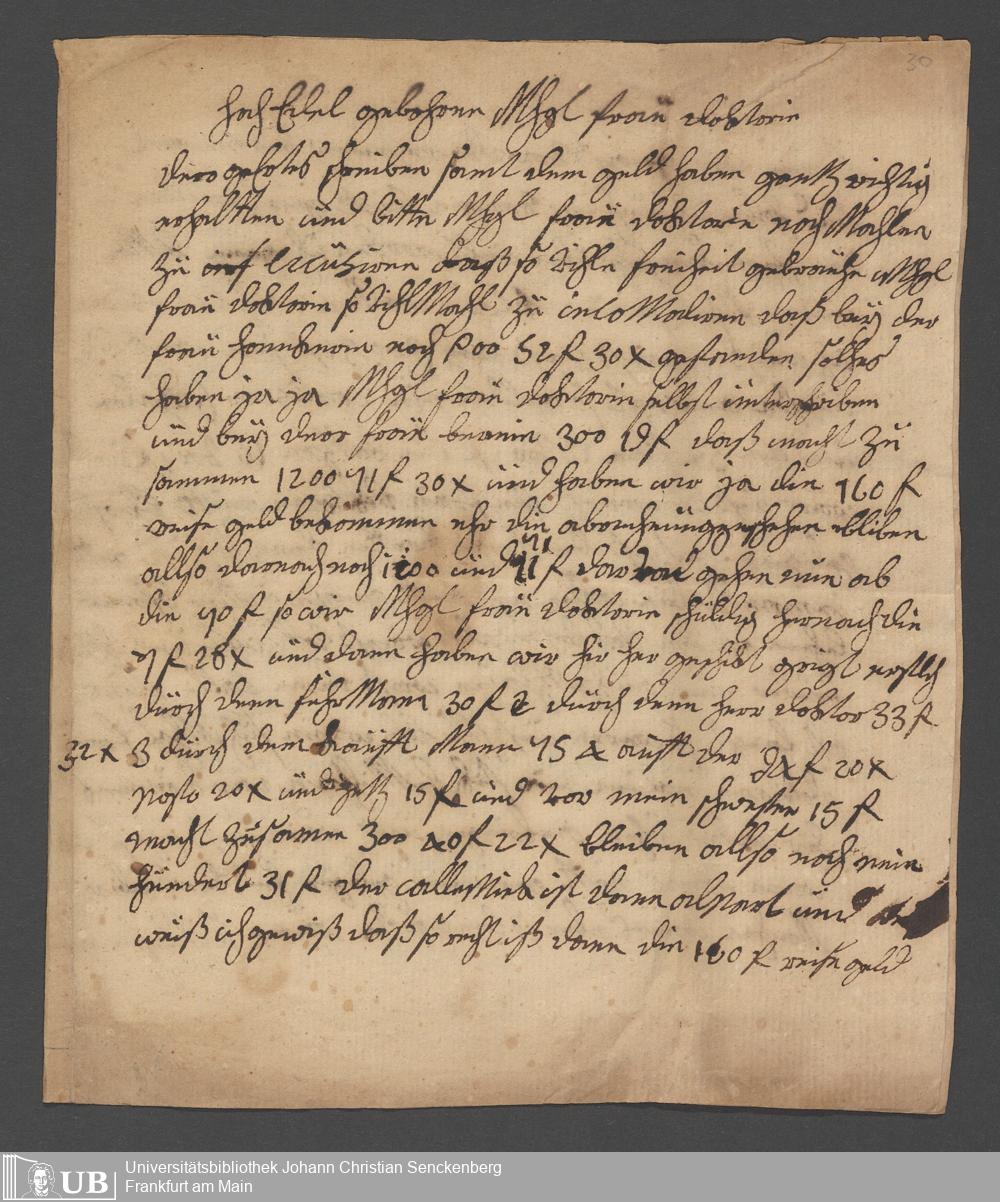 30
Hoch Edel gebohrne Mhgl frau doktorin
dero gehrtes schreiben samt dem geld haben gantz richtig
erhaltten und bitte Mhgl frau doktorin noch Mahlen
zu excusiren daß so vihle freiheit gebrauche Mhgl
frau doktorin so vihl Mahl zu incoMadiren daß bey der
frau noch 900 52 f 30 x gestanden solches
haben ja ja Mhgl frau doktorin selbst unterschriben
und bey dero frau 300 19 f daß macht zu
sammen 1200 71 f 30 x und haben wir ja die 160 f
reise geld bekommen ehr die abrechnung geschehen bliben
allso darnach noch 1200 und 71 f dar von gehen nun ab
die 90 f so wir Mhgl frau doktorin schuldig hernach die
7 f 28 x und dann haben wir hir her geschikt grigt erstlich
durch denn fuhrMann 30 f 2 durch denn herr doktor 33 f
32 x 3 durch dem kauffMann 75 4 auff der 94 f 20 x
post 20 x und jetz 15 f und vor mein schwester 15 f
macht zusamen 300 40 f 22 x bleiben allso noch nein
hundert 31 f der ist dann apart und
weiß ich gewiß daß so recht iß dann die 160 f reise geld
UB
Universitätsbibliothek Johann Christian Senckenberg
Frankfurt am Main